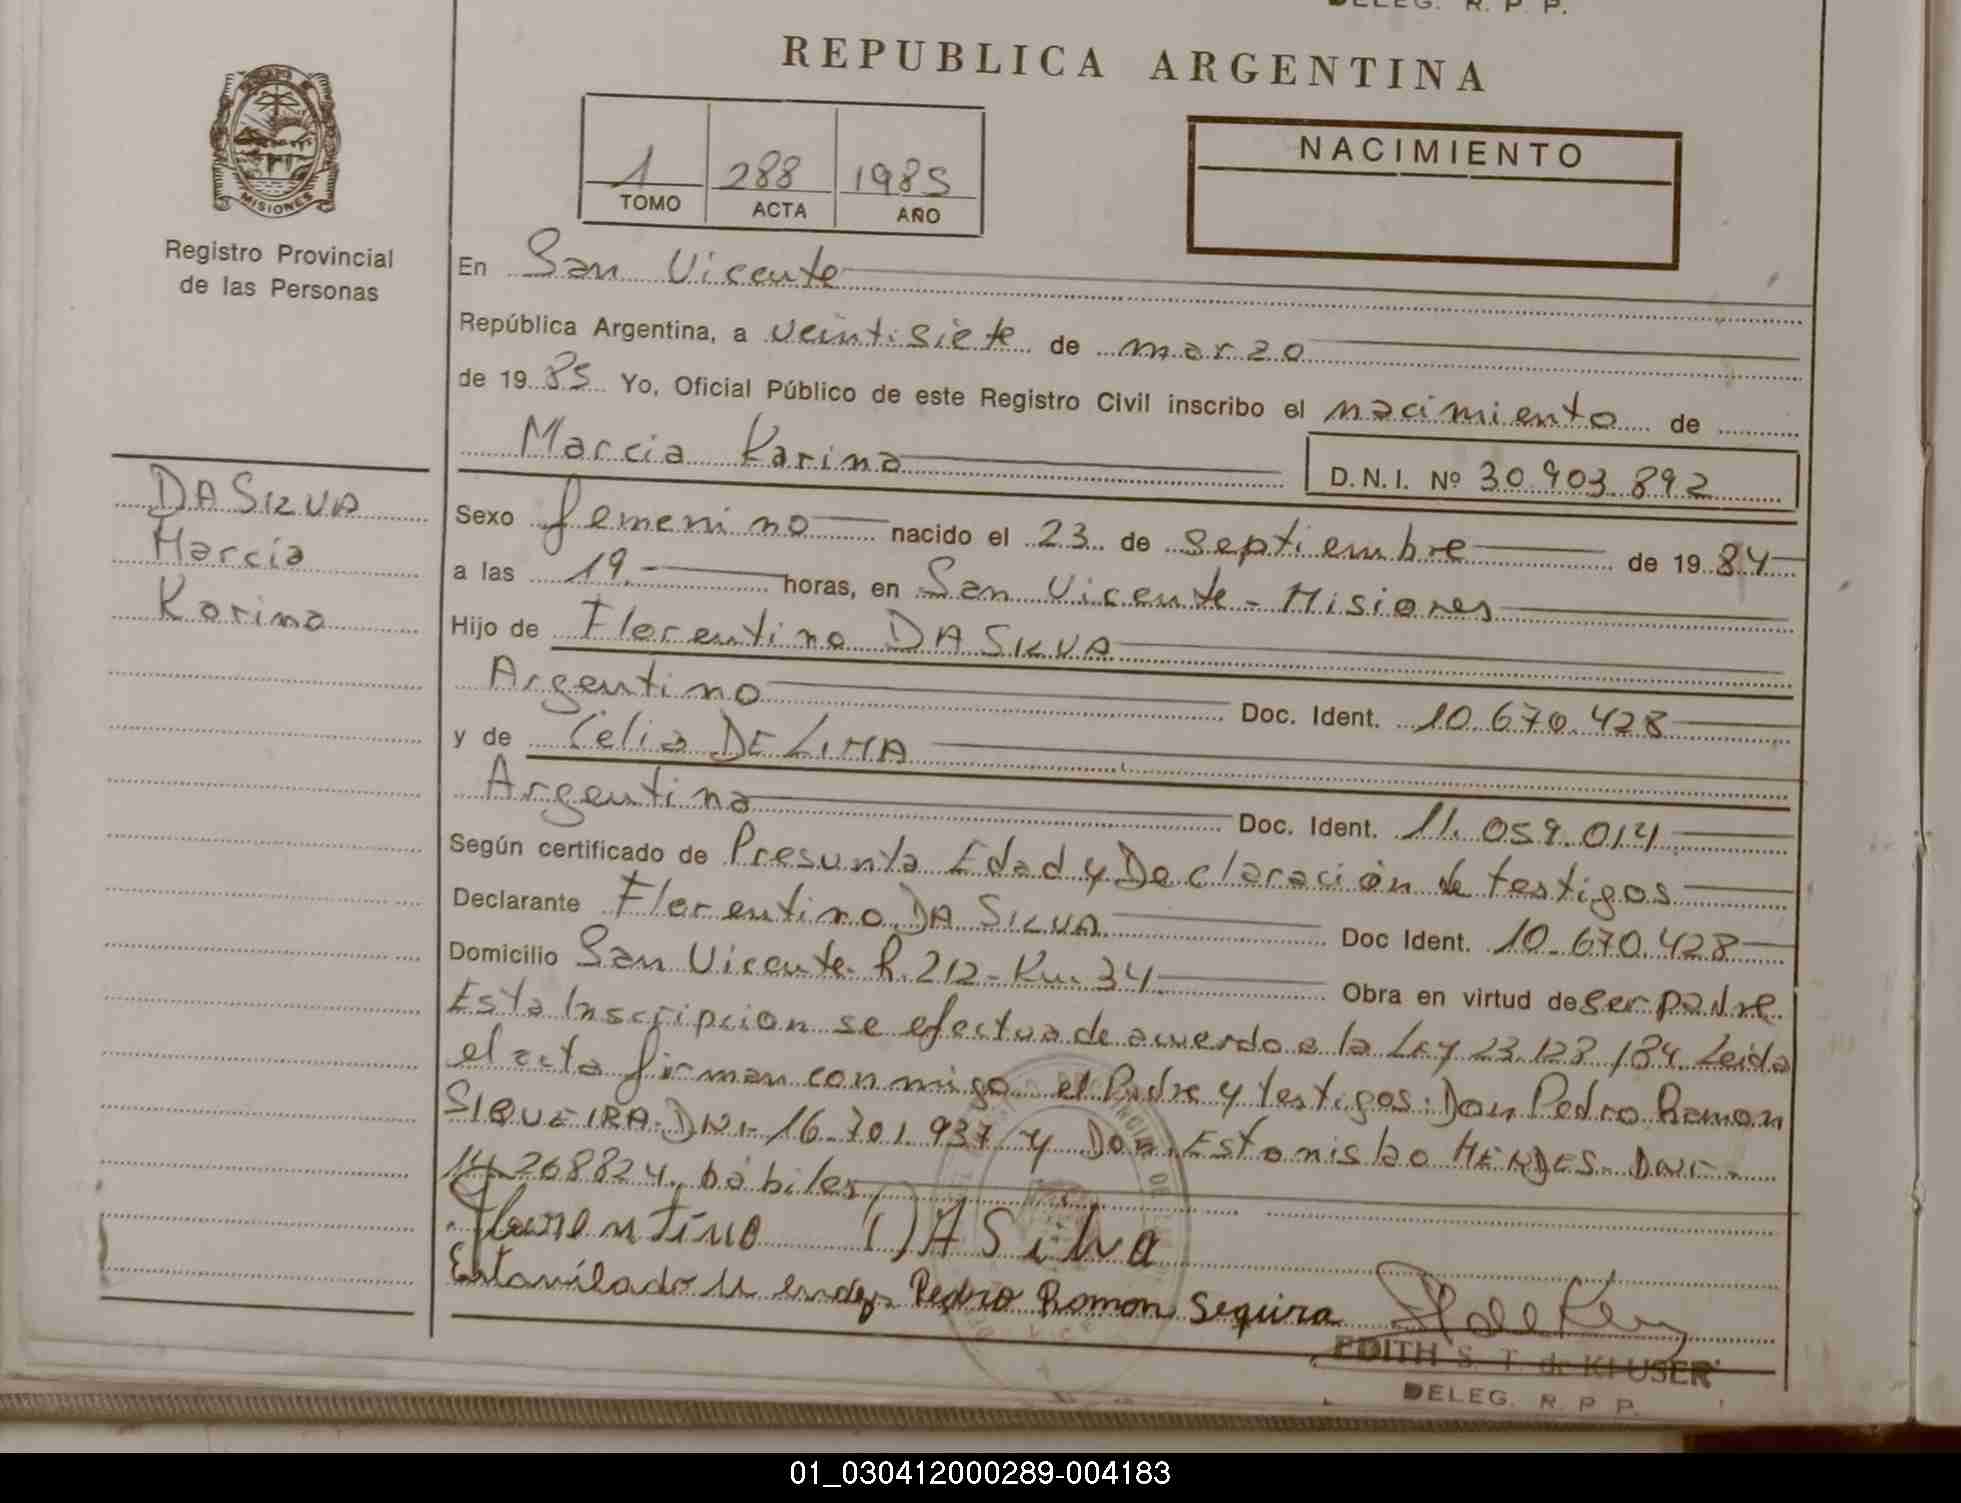 DELEG. R. P. P.
REPUBLICA ARGENTINA
MISIONES
Registro Provincial
de las Personas
1 288 1985
TOMO ACTA AÑO
NACIMIENTO
En San Vicente
República Argentina, a veintisiete de marzo
de 19 85 Yo, Oficial Público de este Registro Civil inscribo el nacimiento de
Marcia Karina D.N.I. Nº 30.903.892
DA SILVA
Marcia
Karina
Sexo femenino nacido el 23 de septiembre de 19 84
a las 19 horas, en San Vicente - Misiones
Hijo de Florentino DA SILVA
Argentino Doc. Ident. 10.670.428
y de Celia DE LIMA
Argentina Doc. Ident. 11.059.014
Según certificado de Presunta Edad y Declaración de testigos
Declarante Florentino DA SILVA Doc Ident. 10.670.428
Domicilio San Vicente R. 212 - Km. 34 Obra en virtud de ser padre
Esta Inscripcion se efectua de acuerdo a la Ley 23.128/84. Leida
el acta firman conmigo el Padre y testigos: Don Pedro Ramon
SIQUEIRA - DNI - 16.701.937 y Don Estanislao MENDES - DNI -
14.268824, hábiles
Florentino DA Silva
Estanilado Mendes Pedro Romon Sequira
EDITH S. T. de KLUSER
DELEG. R. P. P.
01_030412000289-004183